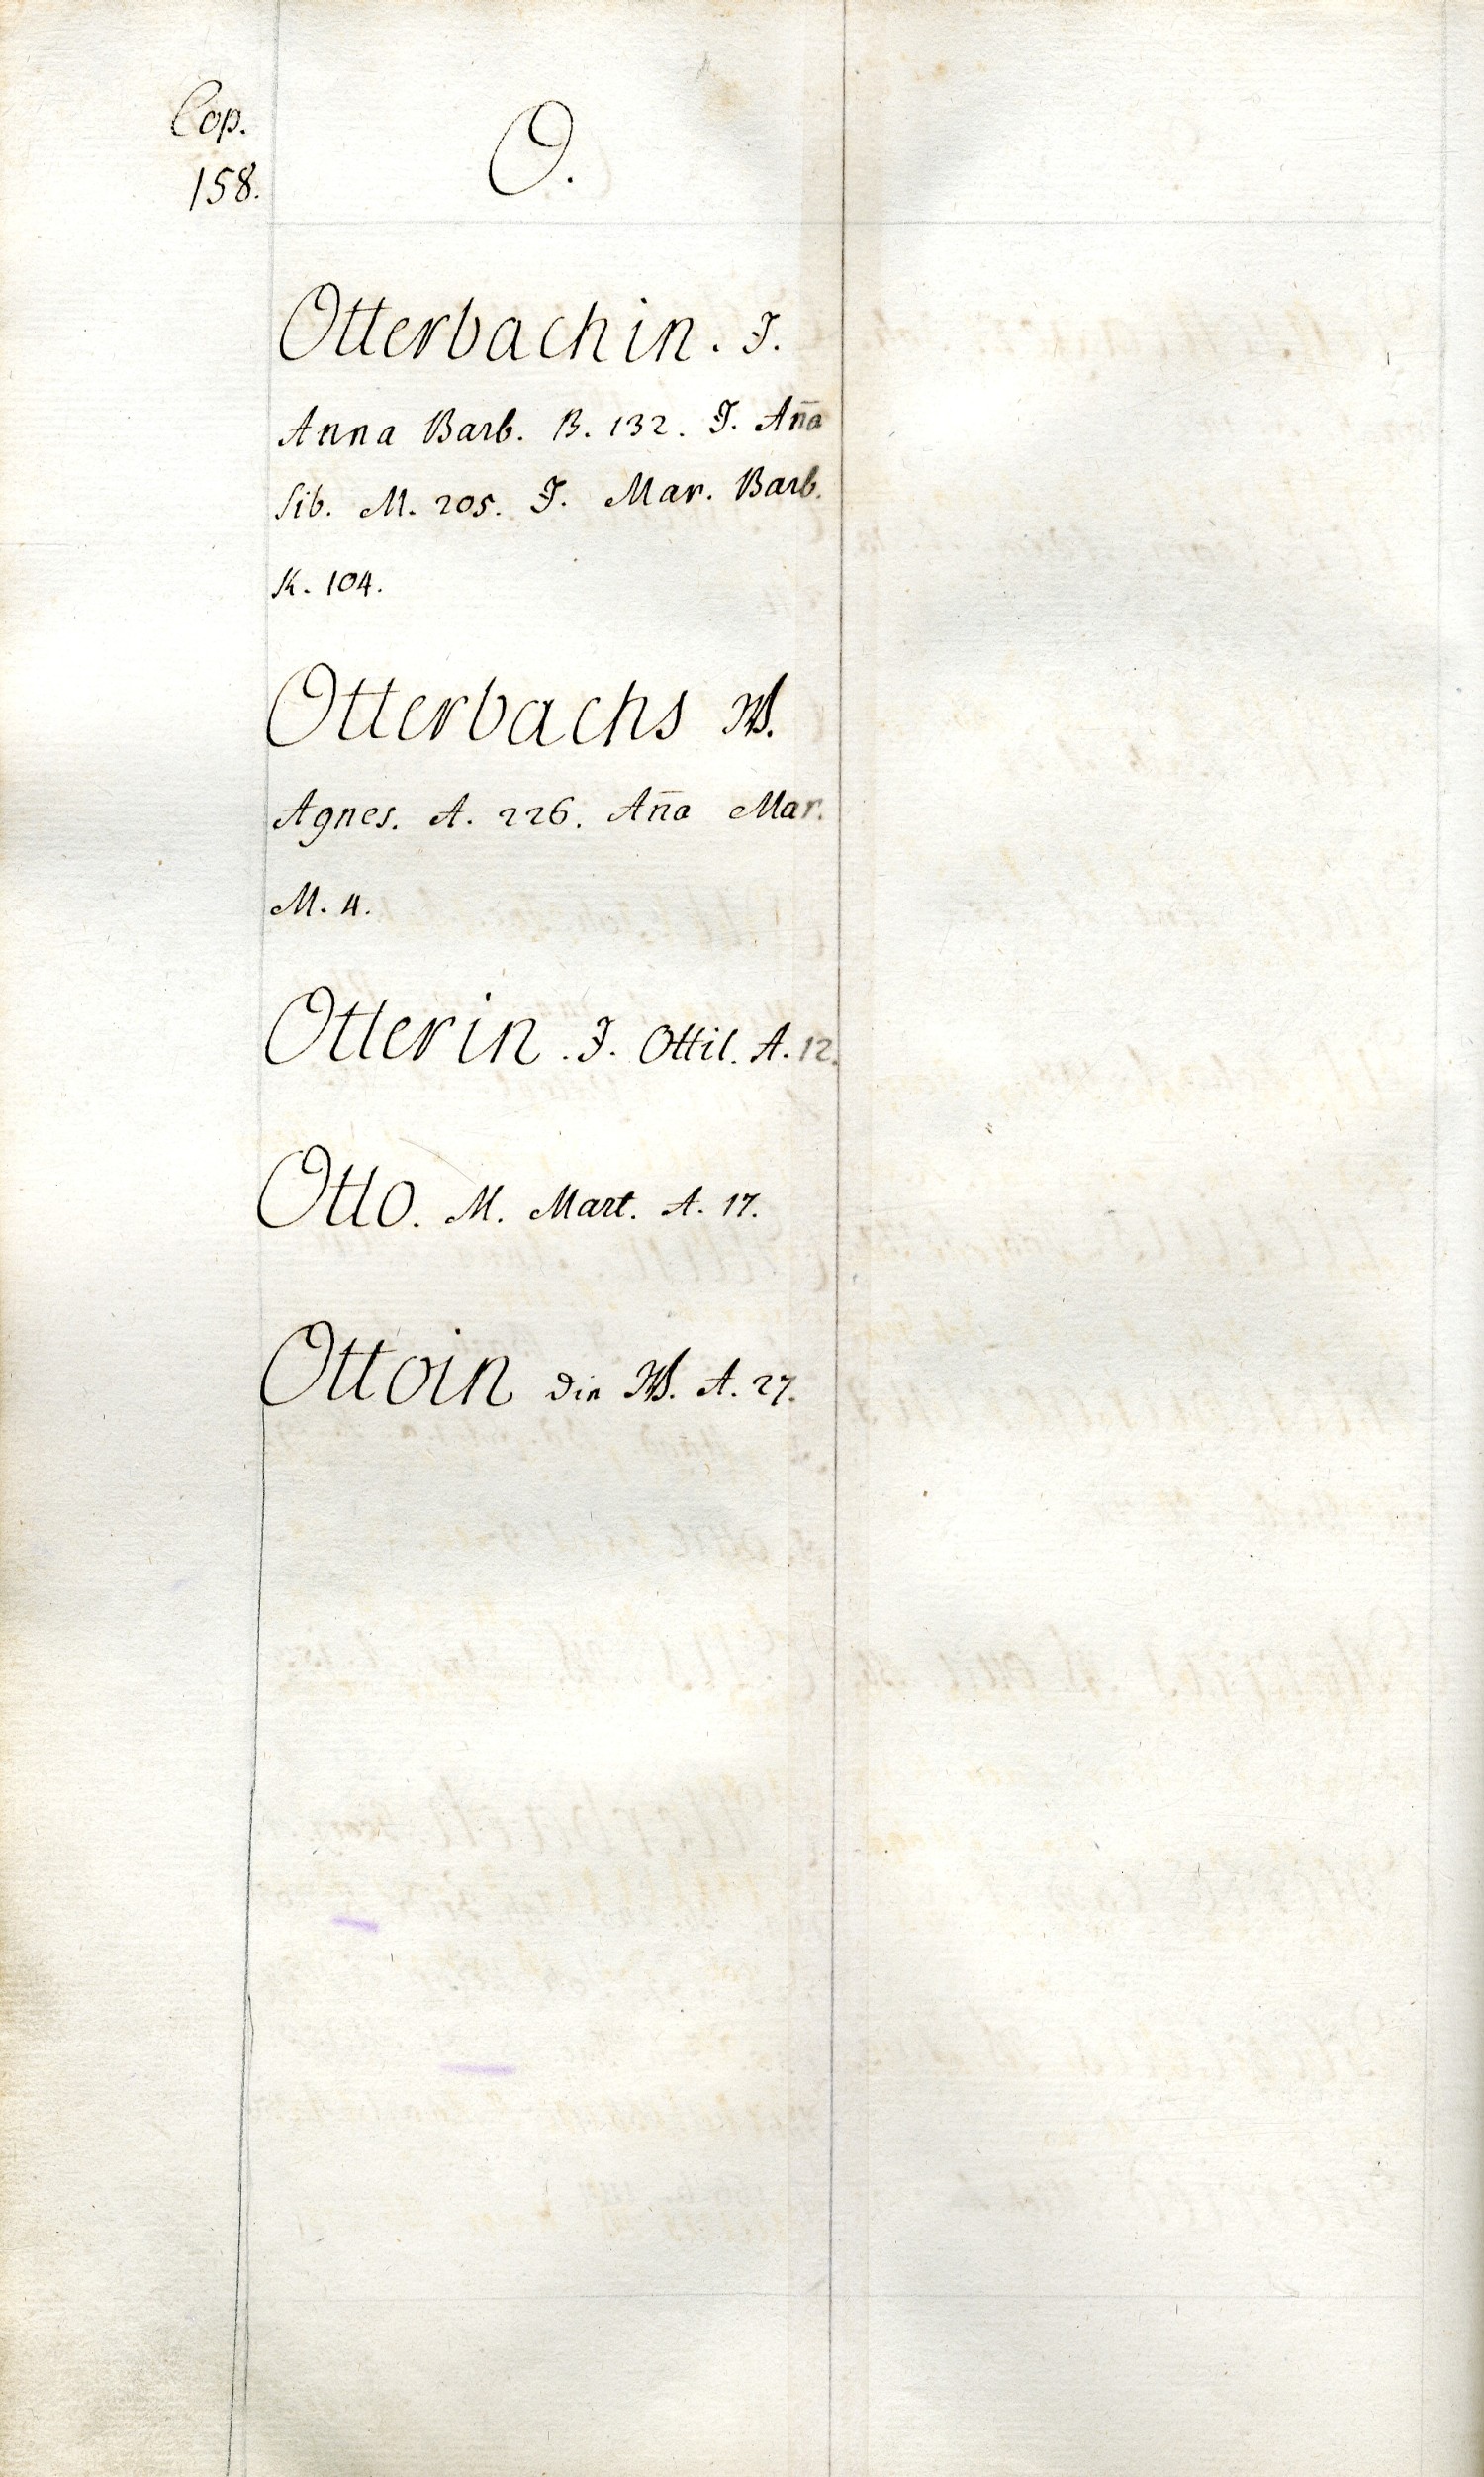 Cop.
158.
O.
Otterbachin. J.
Anna Barb. B. 132. J. Aña
Sib. M. 205. J. Mar. Barb.
K. 104.
Otterbachs W.
Agnes. A. 226. Aña Mar.
M. 4.
Otterin. J. Ottil. A. 12.
Otto. M. Mart. A. 17.
Ottoin die W. A. 27.